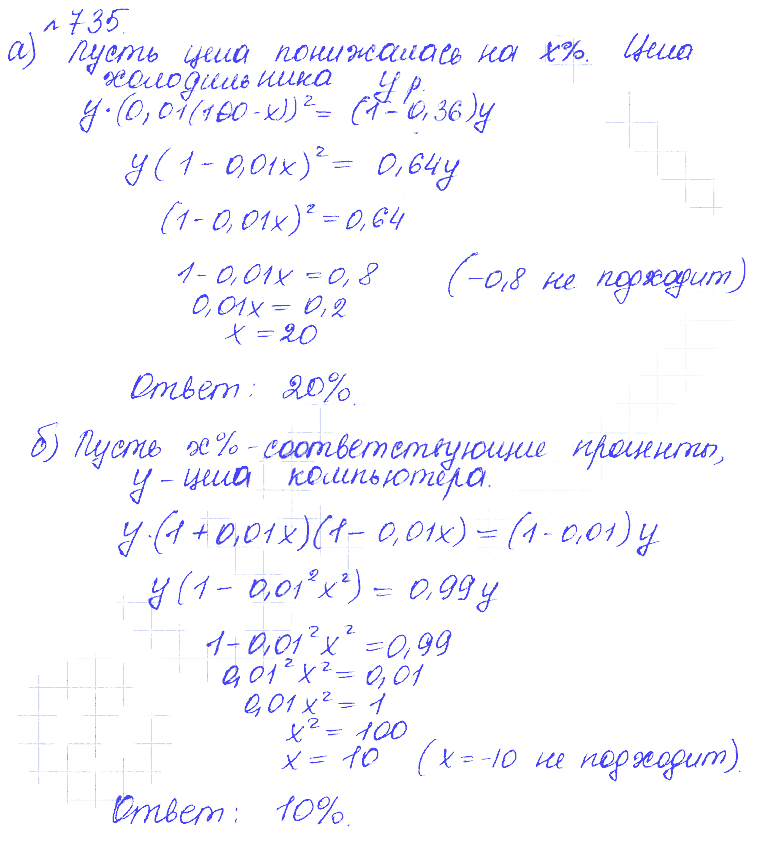 № 735.
а) Пусть цена понижалась на x%. Цена
холодильника y р.
y·(0,01(100-x))² = (1-0,36)y
y(1-0,01x)² = 0,64y
(1-0,01x)² = 0,64
1-0,01x = 0,8 (-0,8 не подходит)
0,01x = 0,2
x = 20
Ответ: 20%.
б) Пусть x% - соответствующие проценты,
y - цена компьютера.
y·(1+0,01x)(1-0,01x) = (1-0,01)y
y(1-0,01²x²) = 0,99y
1-0,01²x² = 0,99
0,01²x² = 0,01
0,01x² = 1
x² = 100
x = 10 (x = -10 не подходит).
Ответ: 10%.